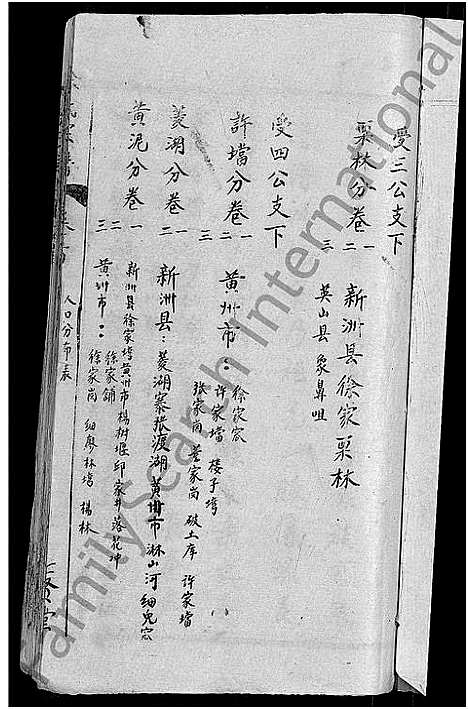 受三公支下
栗林分卷 一 二 三
新洲县徐家栗林
英山县 象鼻咀
受四公支下
許壋分卷 一 二 三
黄州市：
徐家宕
许家壋 楼子塆
张家岗 姜家岗 破土库 许家壋
菱湖分卷 一 二
新洲县：菱湖寨张渡湖 黄州市 淋山河 细兒宕
黄泥分卷 一 二 三
新洲县徐家塆黄州市杨树堰邱家井落花冲
徐家铺
黄州市：
徐家岗 细廖林塆 杨林
人口分布表
FamilySearch International